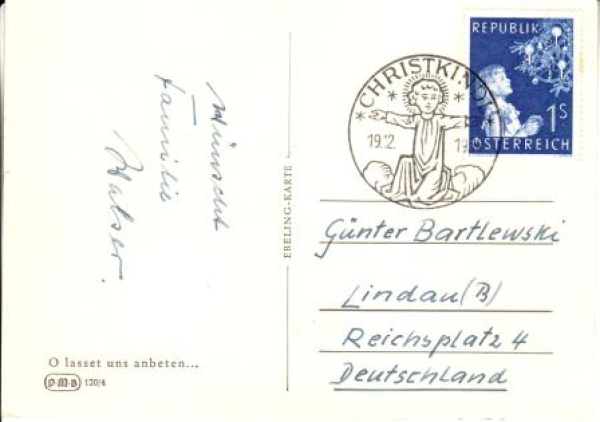 wünscht
Familie
Walser.
O lasset uns anbeten...
P·M·B 120/4
EBELING-KARTE
CHRISTKINDL
19.12.
REPUBLIK
1S
ÖSTERREICH
Günter Bartlewski
Lindau (B)
Reichsplatz 4
Deutschland